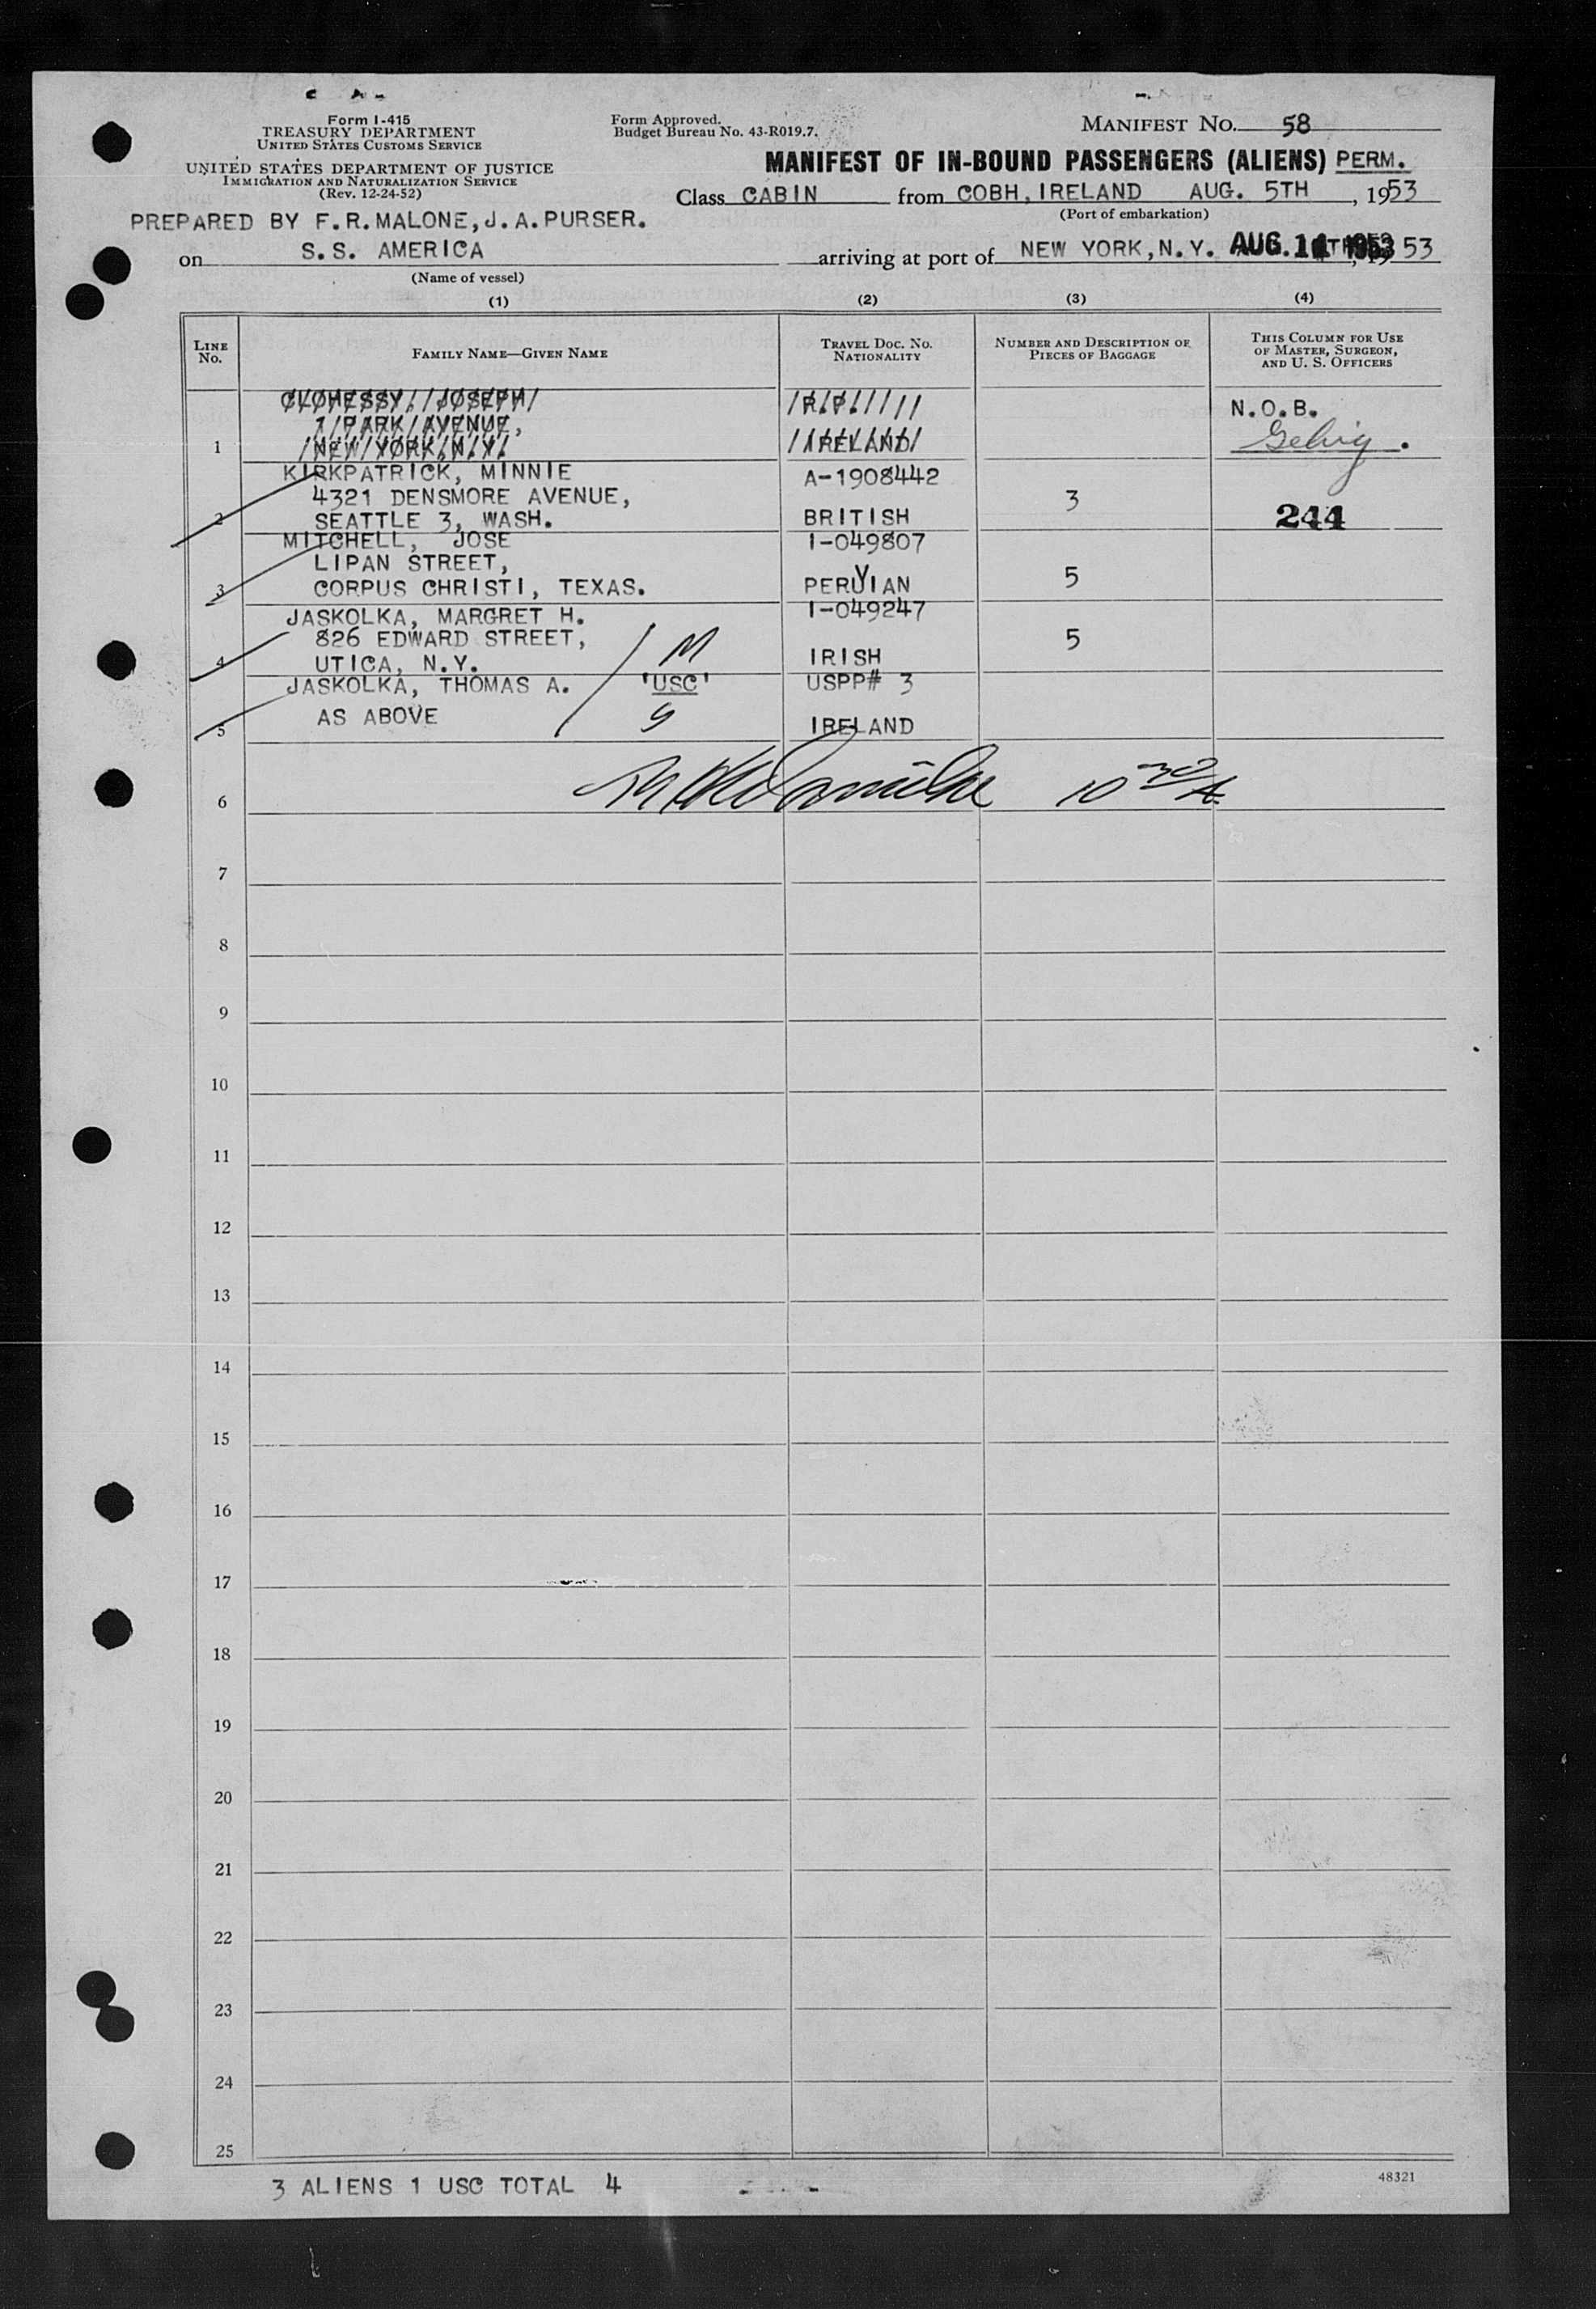 Form I-415
TREASURY DEPARTMENT
UNITED STATES CUSTOMS SERVICE
UNITED STATES DEPARTMENT OF JUSTICE
IMMIGRATION AND NATURALIZATION SERVICE
(Rev. 12-24-52)
Form Approved.
Budget Bureau No. 43-R019.7.
MANIFEST NO. 58
MANIFEST OF IN-BOUND PASSENGERS (ALIENS) PERM.
Class CABIN from COBH, IRELAND AUG. 5TH, 1953
(Port of embarkation)
PREPARED BY F.R.MALONE,J.A.PURSER.
on S.S. AMERICA arriving at port of NEW YORK,N.Y. AUG. 11 1953 53
(Name of vessel)
(1) (2) (3) (4)
LINE NO.
FAMILY NAME—GIVEN NAME
TRAVEL DOC. NO. NATIONALITY
NUMBER AND DESCRIPTION OF PIECES OF BAGGAGE
THIS COLUMN FOR USE OF MASTER, SURGEON, AND U. S. OFFICERS
CLOHESSY, JOSEPH R.P. N.O.B.
1 PARK AVENUE,
1 NEW YORK,N.Y. IRELAND
KIRKPATRICK, MINNIE A-1908442
4321 DENSMORE AVENUE, 3
2 SEATTLE 3, WASH. BRITISH 244
MITCHELL, JOSE I-049807
LIPAN STREET,
3 CORPUS CHRISTI, TEXAS. PERUVIAN 5
JASKOLKA, MARGRET H. I-049247
826 EDWARD STREET, M 5
4 UTICA, N.Y. IRISH
JASKOLKA, THOMAS A. 'USC' USPP# 3
5 AS ABOVE IRELAND
6 10 30 A
7
8
9
10
11
12
13
14
15
16
17
18
19
20
21
22
23
24
25
3 ALIENS 1 USC TOTAL 4
48321